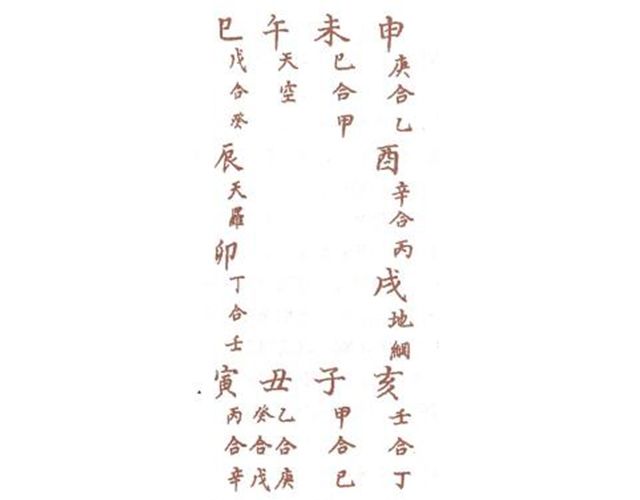 巳
戊合癸
午
天空
未
巳合甲
申
庚合乙
辰
天羅
酉
辛合丙
卯
丁合壬
戌
地網
寅
丙合辛
丑
癸合戊
乙合庚
子
甲合巳
亥
壬合丁